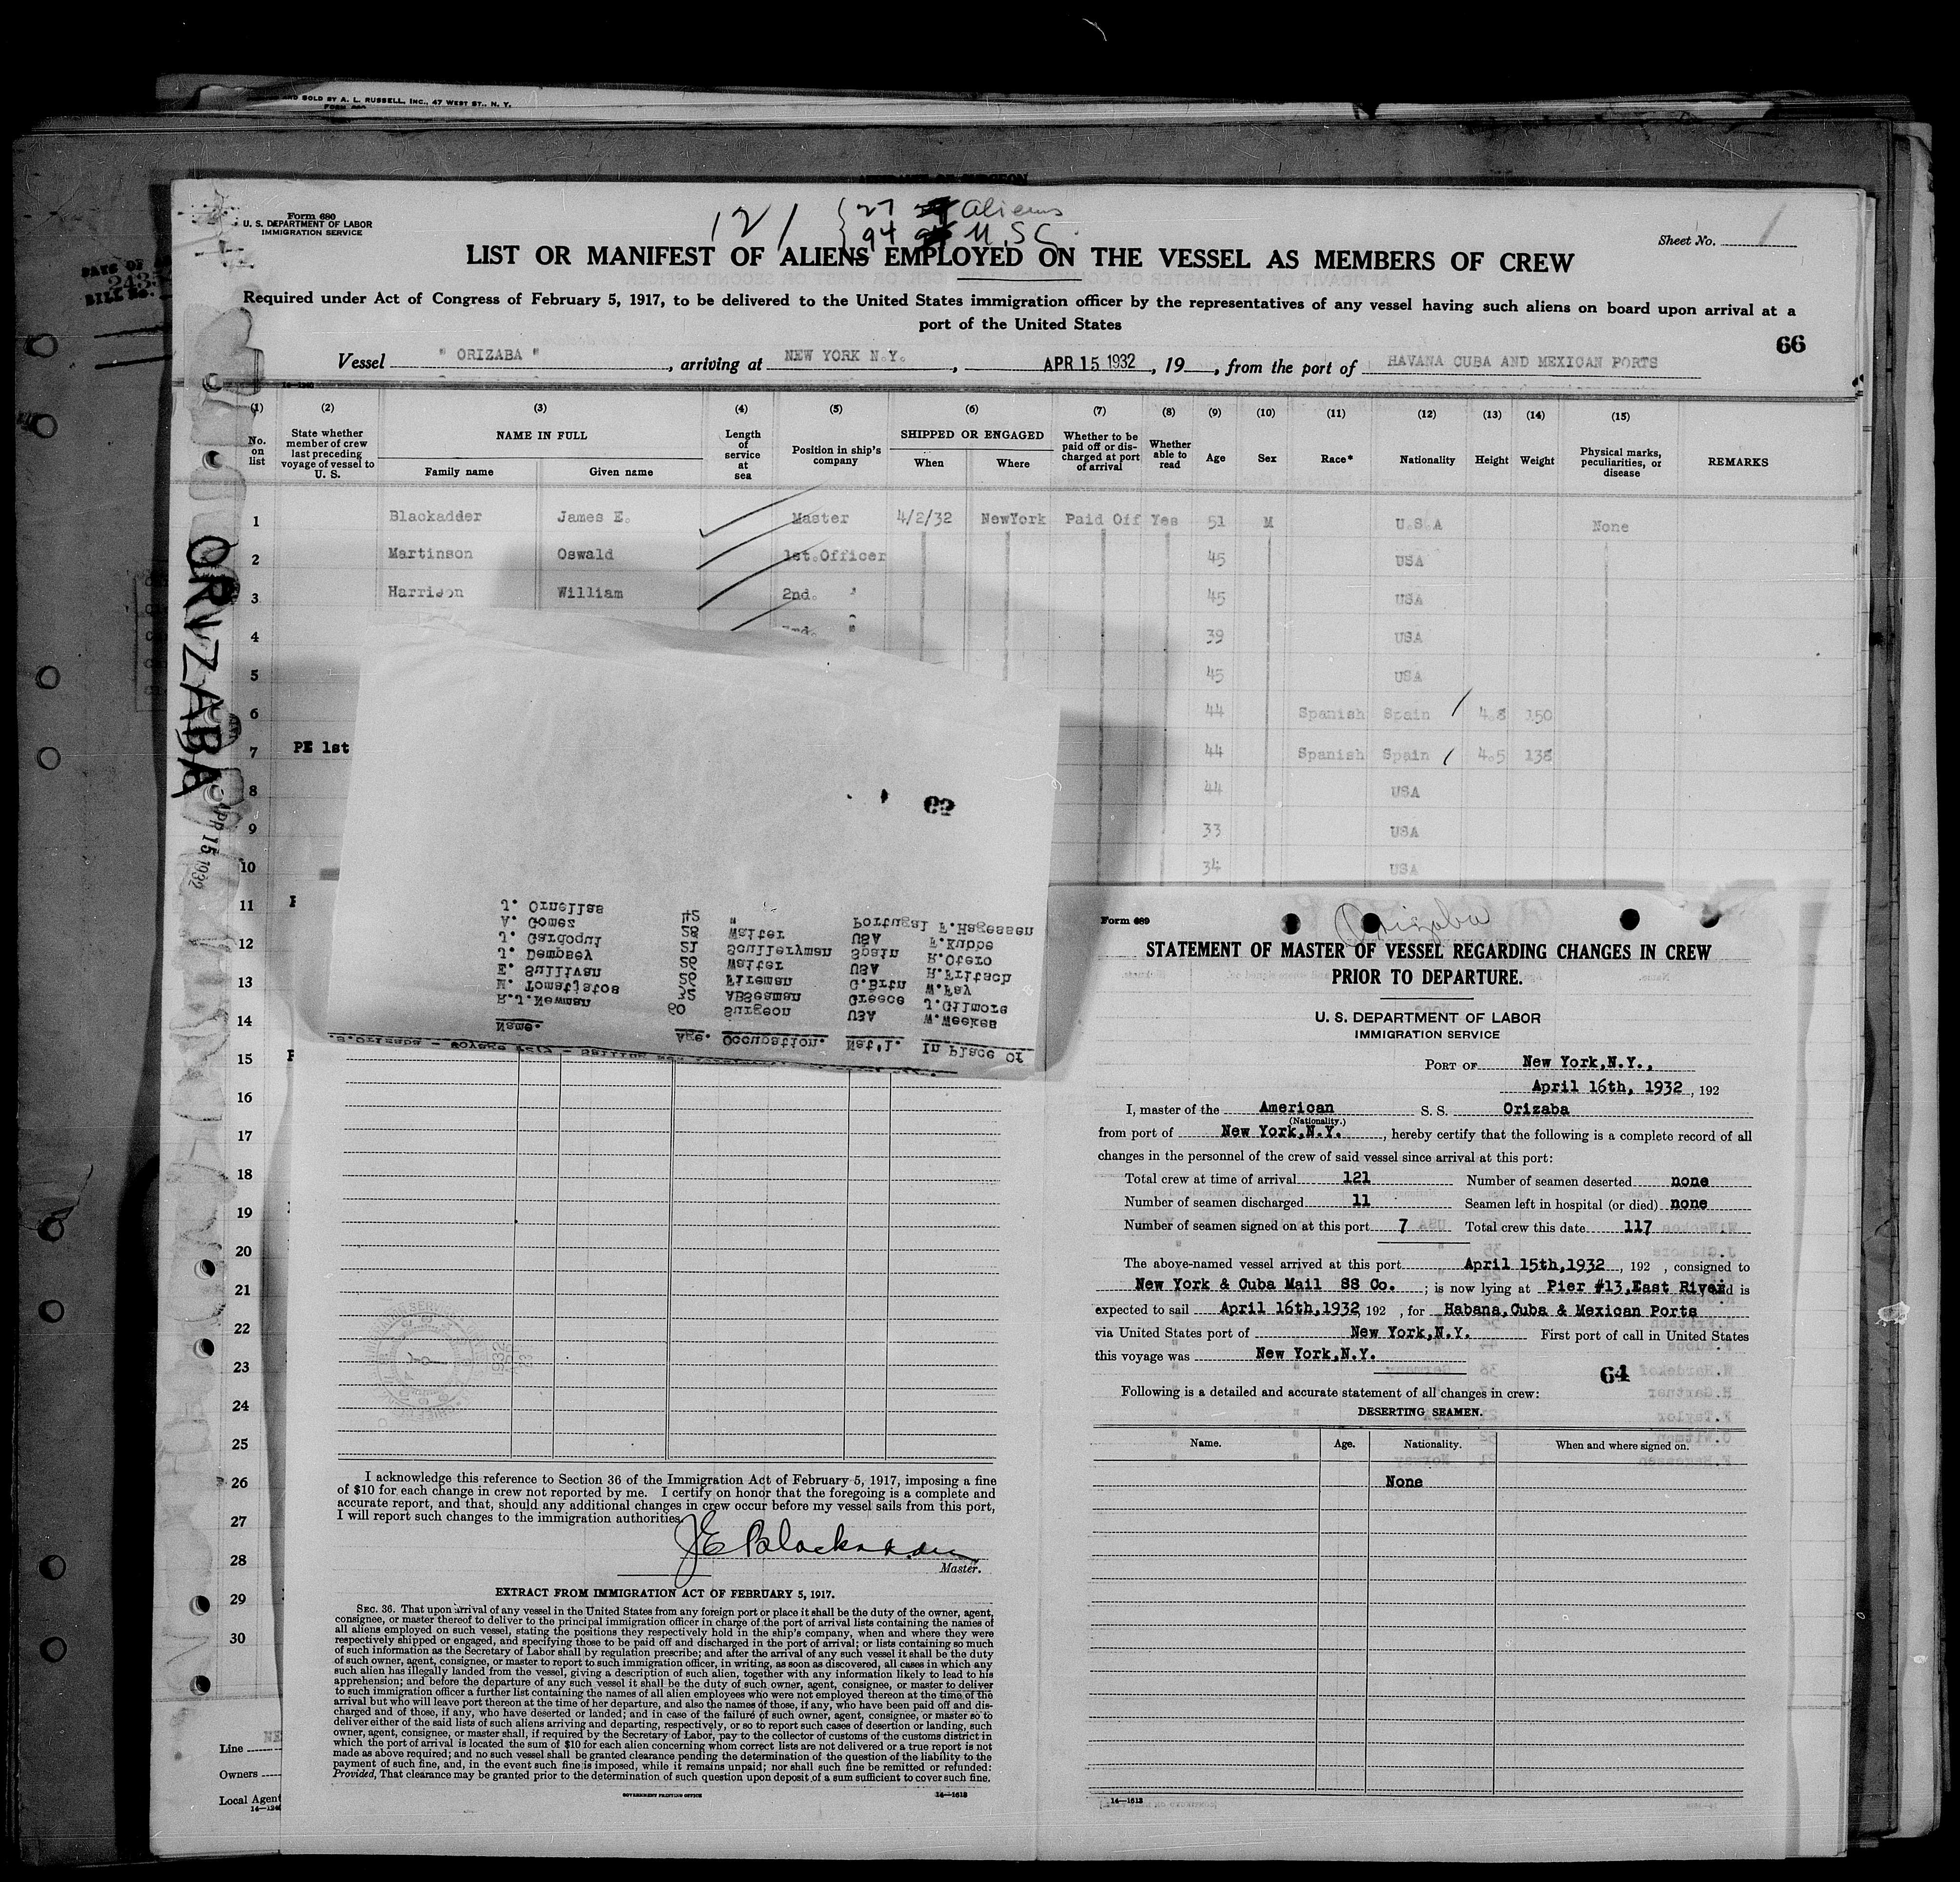 AND SOLD BY A. L. RUSSELL, INC., 47 WEST ST., N. Y.
Form 680
U. S. DEPARTMENT OF LABOR
IMMIGRATION SERVICE
121 { 27 Aliens
94 U.S.C.
Sheet No. 1
LIST OR MANIFEST OF ALIENS EMPLOYED ON THE VESSEL AS MEMBERS OF CREW
Required under Act of Congress of February 5, 1917, to be delivered to the United States immigration officer by the representatives of any vessel having such aliens on board upon arrival at a
port of the United States
66
Vessel " ORIZABA ", arriving at NEW YORK N.Y., APR 15 1932, 19 , from the port of HAVANA CUBA AND MEXICAN PORTS
(1) (2) (3) (4) (5) (6) (7) (8) (9) (10) (11) (12) (13) (14) (15)
No. on list
State whether member of crew last preceding voyage of vessel to U. S.
NAME IN FULL
Family name Given name
Length of service at sea
Position in ship's company
SHIPPED OR ENGAGED
When Where
Whether to be paid off or discharged at port of arrival
Whether able to read
Age Sex Race* Nationality Height Weight
Physical marks, peculiarities, or disease
REMARKS
1 Blackadder James E. Master 4/2/32 NewYork Paid Off Yes 51 M U.S.A None
2 Martinson Oswald 1st.Officer 45 USA
3 Harrison William 2nd. " 45 USA
4 39 USA
5 45 USA
6 44 Spanish Spain 4.8 150
7 PE 1st 44 Spanish Spain 4.5 138
8 44 USA
9 33 USA
10 34 USA
11
12
13
14
15
16
17
18
19
20
21
22
23
24
25
26
27
28
29
30
ORIZABA
APR 15 1932
Line
Owners
Local Agent
62
S.Orizaba - Voyage
Name. Age. Occupation. Nat'l. In Place Of
R.J.Newman 60 Surgeon USA W.Weekes
M. Tomatjatos 35 ABSeaman Greece J.Gilmore
E. Sullivan 26 Fireman G.Brtn W.Fay
J. Dempsey 26 Waiter USA H.Fritsch
J. Gardoqui 21 Sculleryman Spain R.Otero
A. Gomez 28 Waiter USA F.Kubbe
J. Ornellas 42 " Portugal F.Hagessen
I acknowledge this reference to Section 36 of the Immigration Act of February 5, 1917, imposing a fine
of $10 for each change in crew not reported by me. I certify on honor that the foregoing is a complete and
accurate report, and that, should any additional changes in crew occur before my vessel sails from this port,
I will report such changes to the immigration authorities.
J E Blackadder
Master.
EXTRACT FROM IMMIGRATION ACT OF FEBRUARY 5, 1917.
SEC. 36. That upon arrival of any vessel in the United States from any foreign port or place it shall be the duty of the owner, agent,
consignee, or master thereof to deliver to the principal immigration officer in charge of the port of arrival lists containing the names of
all aliens employed on such vessel, stating the positions they respectively hold in the ship's company, when and where they were
respectively shipped or engaged, and specifying those to be paid off and discharged in the port of arrival; or lists containing so much
of such information as the Secretary of Labor shall by regulation prescribe; and after the arrival of any such vessel it shall be the duty
of such owner, agent, consignee, or master to report to such immigration officer, in writing, as soon as discovered, all cases in which any
such alien has illegally landed from the vessel, giving a description of such alien, together with any information likely to lead to his
apprehension; and before the departure of any such vessel it shall be the duty of such owner, agent, consignee, or master to deliver
to such immigration officer a further list containing the names of all alien employees who were not employed thereon at the time of the
arrival but who will leave port thereon at the time of her departure, and also the names of those, if any, who have been paid off and dis-
charged and of those, if any, who have deserted or landed; and in case of the failure of such owner, agent, consignee, or master so to
deliver either of the said lists of such aliens arriving and departing, respectively, or so to report such cases of desertion or landing, such
owner, agent, consignee, or master shall, if required by the Secretary of Labor, pay to the collector of customs of the customs district in
which the port of arrival is located the sum of $10 for each alien concerning whom correct lists are not delivered or a true report is not
made as above required; and no such vessel shall be granted clearance pending the determination of the question of the liability to the
payment of such fine, and, in the event such fine is imposed, while it remains unpaid; nor shall such fine be remitted or refunded:
Provided, That clearance may be granted prior to the determination of such question upon deposit of a sum sufficient to cover such fine.
GOVERNMENT PRINTING OFFICE 14—1613
Form 689
Orizaba
STATEMENT OF MASTER OF VESSEL REGARDING CHANGES IN CREW
PRIOR TO DEPARTURE.
U. S. DEPARTMENT OF LABOR
IMMIGRATION SERVICE
PORT OF New York,N.Y.,
April 16th, 1932, 192
I, master of the American S. S. Orizaba
(Nationality.)
from port of New York,N.Y., hereby certify that the following is a complete record of all
changes in the personnel of the crew of said vessel since arrival at this port:
Total crew at time of arrival 121 Number of seamen deserted none
Number of seamen discharged 11 Seamen left in hospital (or died) none
Number of seamen signed on at this port 7 Total crew this date 117
The above-named vessel arrived at this port April 15th,1932, 192 , consigned to
New York & Cuba Mail SS Co. ; is now lying at Pier #13,East River and is
expected to sail April 16th,1932 192 , for Habana,Cuba & Mexican Ports
via United States port of New York,N.Y. First port of call in United States
this voyage was New York,N.Y.
64
Following is a detailed and accurate statement of all changes in crew:
DESERTING SEAMEN.
Name. Age. Nationality. When and where signed on.
None
14—1613